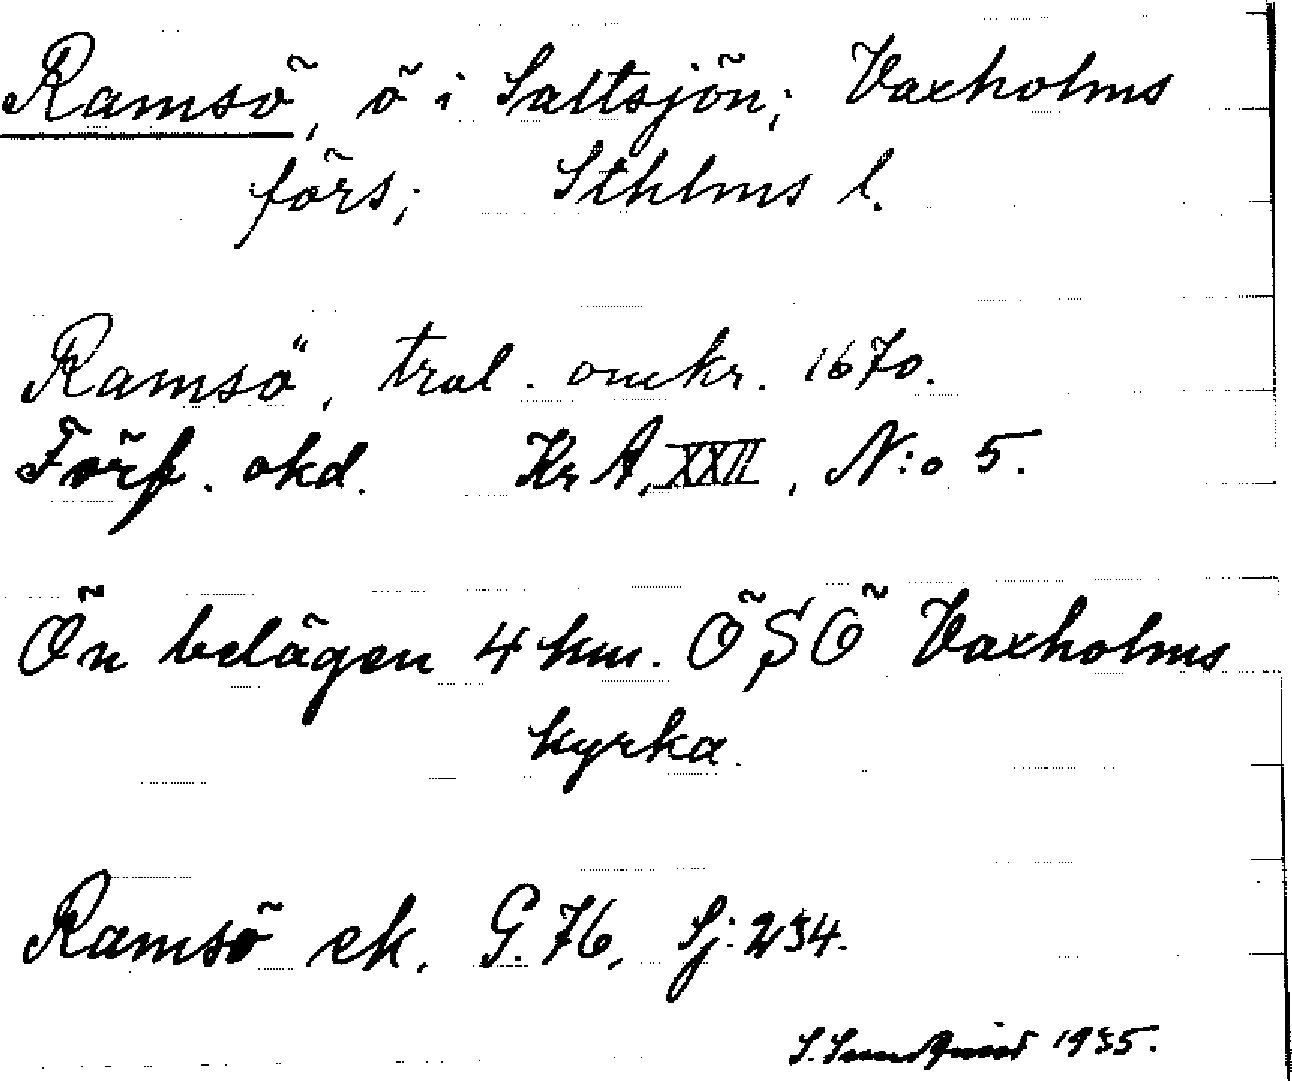 Ramsö, ö i Saltsjön; Vaxholms
förs; Sthlms l.
Ramsö, trol. omkr. 1670.
Förf. okd. Kr A, XXII, N:o 5.
Ön belägen 4 km. ÖSÖ Vaxholms
kyrka.
Ramsö ek. G. 76, Sj: 234.
S. Sundqvist 1935.